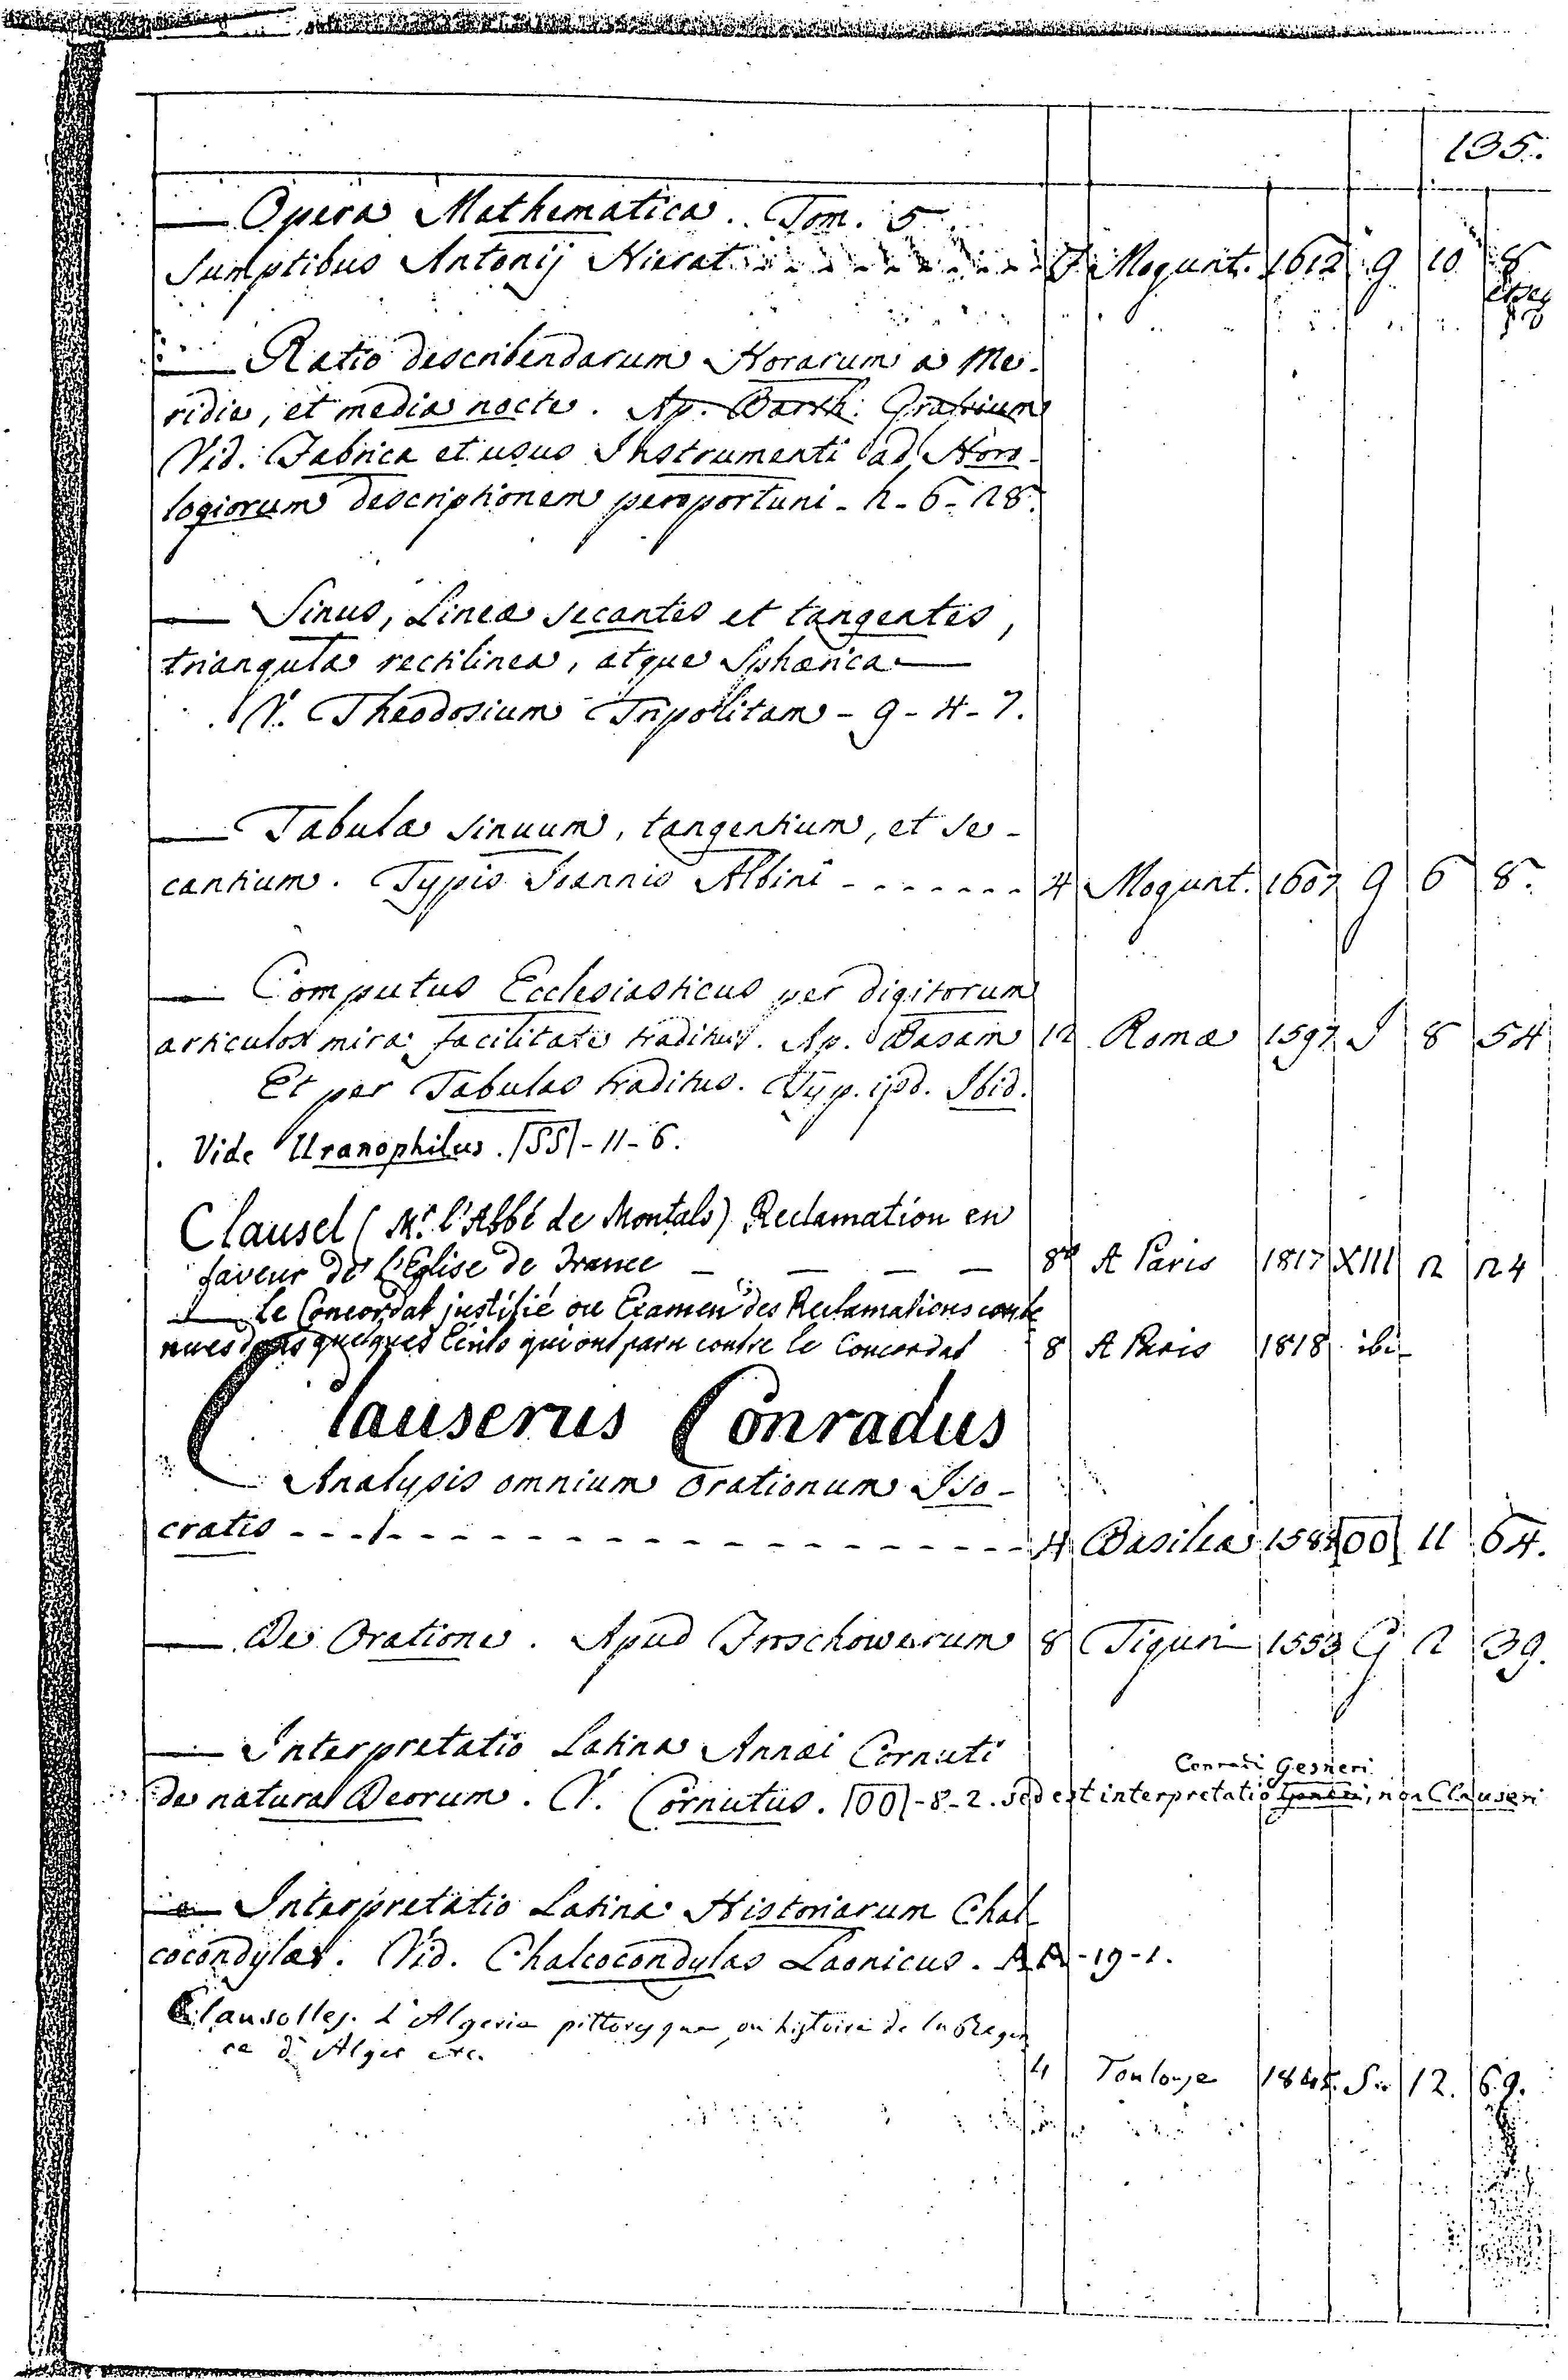 135.
— Opera Mathematica. Tom. 5.
Sumptibus Antonij Hierat f. Mogunt. 1612 9 10 8
et seq
— Ratio describendarum Horarum a Me-
ridie, et media nocte. Ap. Barth. Grassium
Vid. Fabrica et usus Instrumenti ad Horo-
logiorum descriptionem peropportuni - h - 6 - 28.
— Sinus, Lineæ secantes et tangentes,
triangula rectilinea, atque Sphærica —
V. Theodosium Tripolitam - 9 - 4 - 7.
— Tabulæ sinuum, tangentium, et se-
cantium. Typis Joannis Albini - - - - - - - 4 Mogunt. 1607 9 6 8.
— Computus Ecclesiasticus per digitorum
articulos mira facilitate traditus. Ap. Basam 12 Romæ 1597 I 8 54
Et per Tabulas traditus. Typ. ipsd. Ibid.
Vide Uranophilus. |SS| - 11 - 6.
Clausel (Mr. l'Abbé de Montals) Reclamation en
faveur de l'Eglise de France — — — — 8º A Paris 1817 XIII 2 24
— Le Concordat justifié ou Examen des Reclamations conte
nues dans quelques Ecrits qui ont paru contre le Concordat 8 A Paris 1818 ibi-
Clauserus Conradus
Analysis omnium orationum Iso-
cratis - - - - - - - - - - - - - - - - - 4 Basileæ 158 |OO| 11 64.
— De Oratione. Apud Froschowerum 8 Tiguri 1553 G 2 39.
— Interpretatio Latina Annæi Cornuti
Conradi Gesneri
de natura Deorum. V. Cornutus. |OO| - 8 - 2. sed est interpretatio, non Clauseri
— Interpretatio Latina Historiarum Chal-
cocondylæ. Vid. Chalcocondylas Laonicus. AA - 19 - 1.
Clausolles. L'Algerie pittoresque ou histoire de la Regen
ce d'Alger etc.
4 Toulouse 184 S. 12. 69.